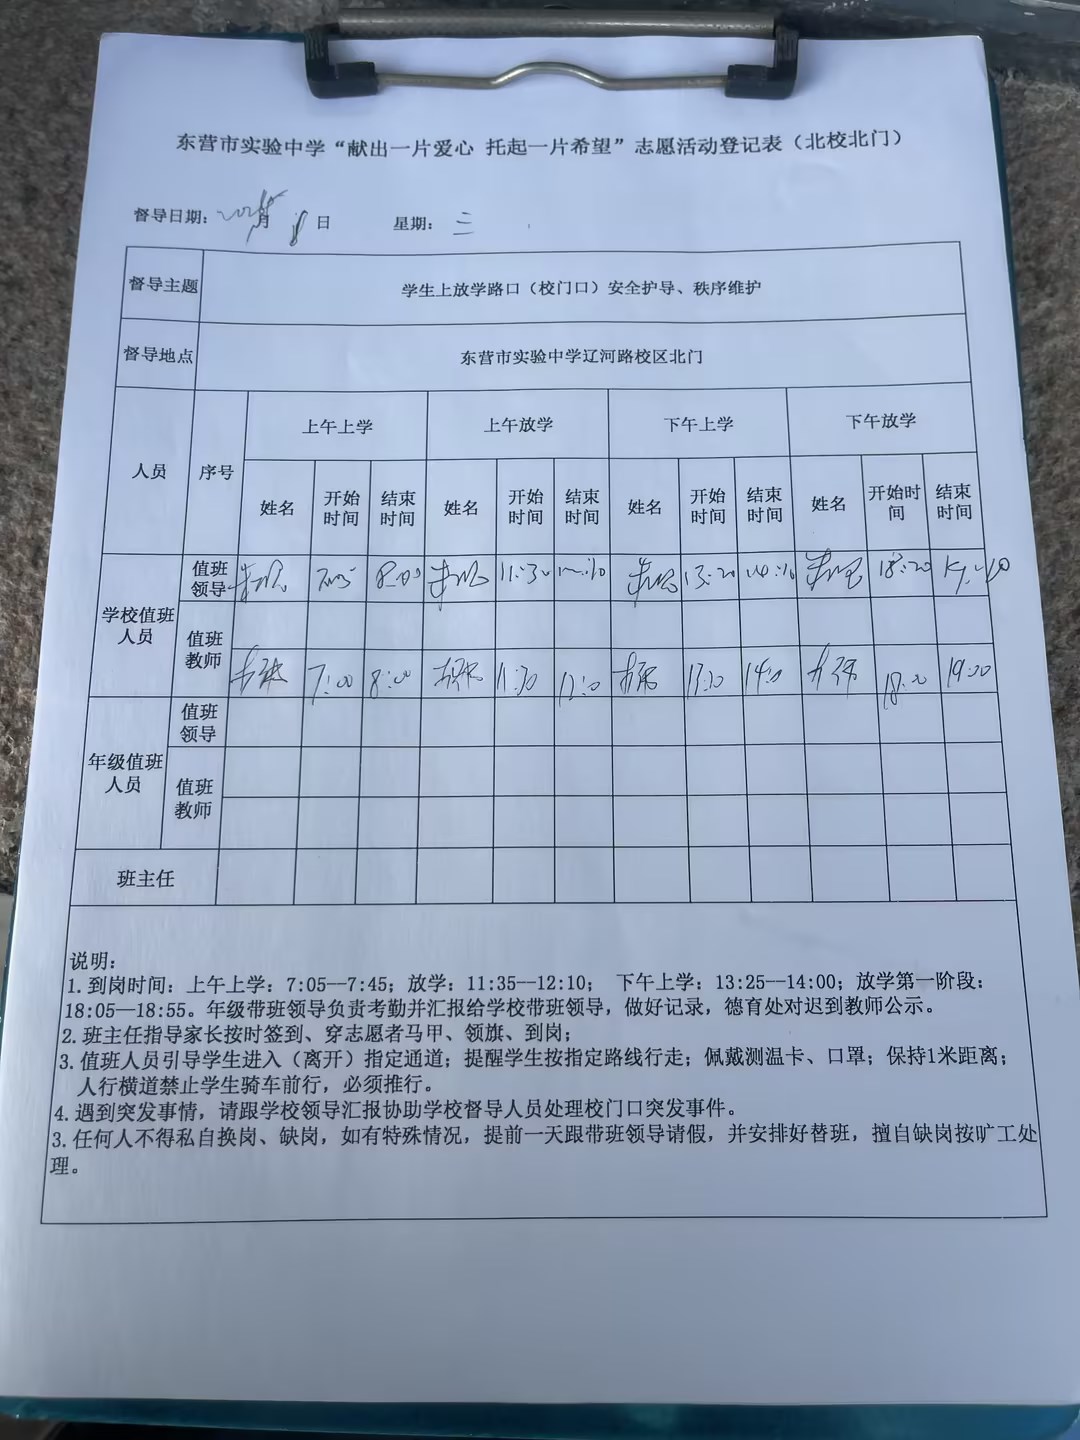 东营市实验中学“献出一片爱心 托起一片希望”志愿活动登记表（北校北门）
督导日期： 月 8 日 星期： 三
督导主题 学生上放学路口（校门口）安全护导、秩序维护
督导地点 东营市实验中学辽河路校区北门
人员 序号 上午上学 上午放学 下午上学 下午放学
姓名 开始时间 结束时间 姓名 开始时间 结束时间 姓名 开始时间 结束时间 姓名 开始时间 结束时间
学校值班人员 值班领导 7:05 8:00 11:30 12:10 13:20 14:10 18:20 19:40
值班教师
7:00 8:00 11:30 12:10 13:20 14:10 18:00 19:00
年级值班人员 值班领导
值班教师
班主任
说明：
1. 到岗时间：上午上学：7:05--7:45；放学：11:35--12:10； 下午上学：13:25--14:00；放学第一阶段：
18:05—18:55。年级带班领导负责考勤并汇报给学校带班领导，做好记录，德育处对迟到教师公示。
2. 班主任指导家长按时签到、穿志愿者马甲、领旗、到岗；
3. 值班人员引导学生进入（离开）指定通道；提醒学生按指定路线行走；佩戴测温卡、口罩；保持1米距离；
人行横道禁止学生骑车前行，必须推行。
4. 遇到突发事情，请跟学校领导汇报协助学校督导人员处理校门口突发事件。
3. 任何人不得私自换岗、缺岗，如有特殊情况，提前一天跟带班领导请假，并安排好替班，擅自缺岗按旷工处
理。